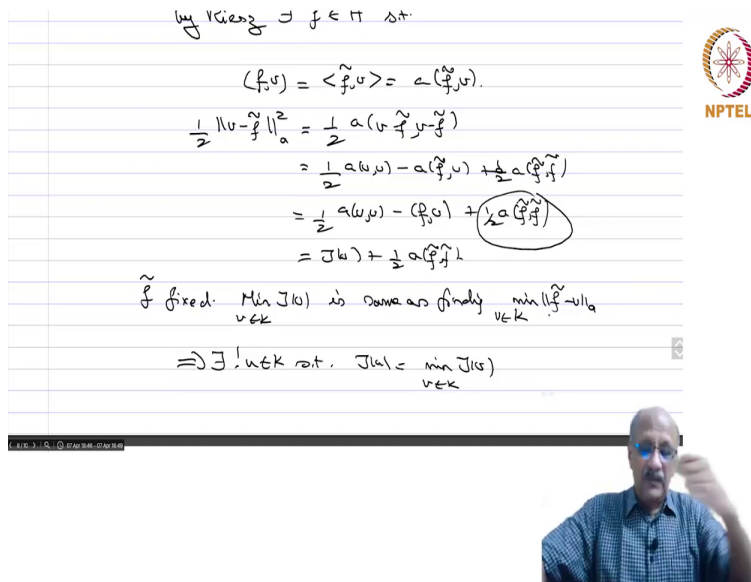 by Riesz ∃ f̃ ∈ H s.t.
(f,v) = <f̃,v> = a(f̃,v).
NPTEL
½ ||v-f̃||²ₐ = ½ a(v-f̃, v-f̃)
= ½ a(v,v) - a(f̃,v) + ½ a(f̃,f̃)
= ½ a(v,v) - (f,v) + ½ a(f̃,f̃)
= J(v) + ½ a(f̃,f̃)
f̃ fixed. Min_{v∈K} J(v) is same as finding min_{v∈K} ||f̃-v||ₐ
⇒ ∃! u∈K s.t. J(u) = min_{v∈K} J(v)
8/10 07 Apr 18:46 - 07 Apr 18:49